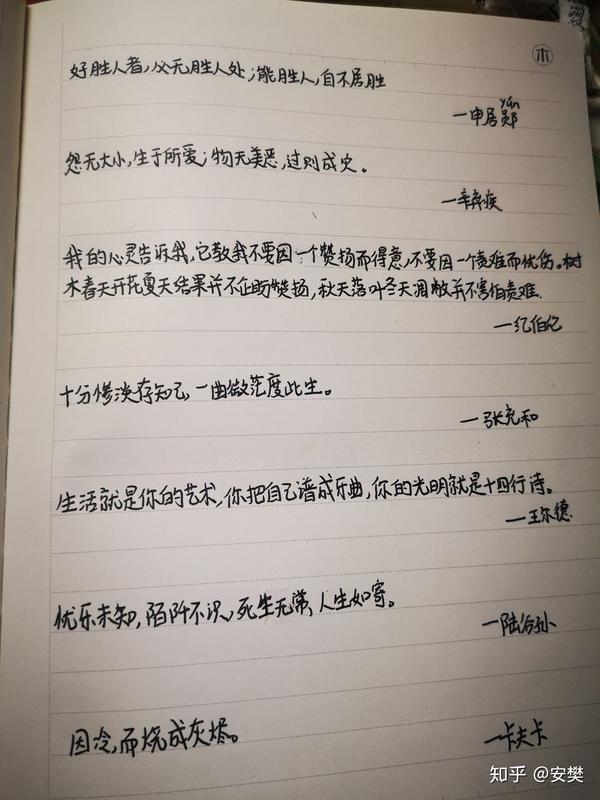 木
好胜人者，必无胜人处；能胜人，自不居胜
yún
—申居郧
怨无大小，生于所爱；物无美恶，过则成灾。
—辛弃疾
我的心灵告诉我，它教我不要因一个赞扬而得意，不要因一个责难而忧伤。树
木春天开花夏天结果并不企盼赞扬，秋天落叶冬天凋敝并不害怕责难.
—纪伯伦
十分惨淡存知己，一曲微茫度此生。
—张充和
生活就是你的艺术，你把自己谱成乐曲，你的光明就是十四行诗。
—王尔德
忧乐未知，陌阡不识，死生无常，人生如寄。
—陆谷孙
因冷，而烧成灰烬。
—卡夫卡
知乎 @安樊